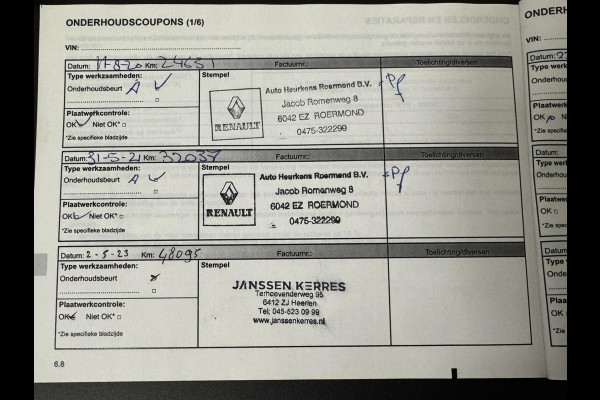 ONDERHOUDSCOUPONS (1/6)
VIN:
Datum: 11-8-20 Km: 24651 Factuurnr.: Toelichting/diversen
Type werkzaamheden: Stempel
Onderhoudsbeurt A
Plaatwerkcontrole:
OK Niet OK*
*Zie specifieke bladzijde
RENAULT
Auto Heurkens Roermond B.V.
Jacob Romenweg 8
6042 EZ ROERMOND
0475-322299
Datum: 31-5-21 Km: 32037 Factuurnr.: Toelichting/diversen
Type werkzaamheden: Stempel
Onderhoudsbeurt A
Plaatwerkcontrole:
OK Niet OK*
*Zie specifieke bladzijde
RENAULT
Auto Heurkens Roermond B.V.
Jacob Romenweg 8
6042 EZ ROERMOND
0475-322299
Datum: 2-5-23 Km: 48095 Factuurnr.: Toelichting/diversen
Type werkzaamheden: Stempel
Onderhoudsbeurt
Plaatwerkcontrole:
OK Niet OK*
*Zie specifieke bladzijde
JANSSEN KERRES
Terhoevenderweg 95
6412 ZJ Heerlen
Tel; 045-523 09 99
www.janssenkerres.nl
6.8
ONDERH
VIN:
Datum:
Type w
Onderhou
Plaatwer
OK
*Zie spec
Datum:
Type w
Onderhou
Plaatwe
OK
*Zie spe
Datum
Type
Onde
Plaa
OK
*Zie